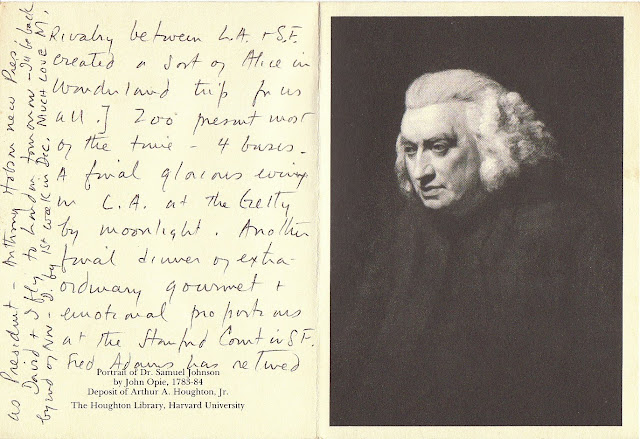 Rivalry between L.A. + S.F.
created a sort of Alice in
Wonderland trip for us
all.] 200 present most
of the time - 4 buses.
A final glorious evening
in L.A. at the Getty
by moonlight. Another
final dinner of extra-
ordinary gourmet +
emotional proportions
at the Stanford Court in S.F.
Fred Adams has retired
as President - Anthony Hobson new Pres.
David + I fly to London tomorrow - I'll be back
by end of Nov - D. by 1st week in Dec. Much love M.
Portrait of Dr. Samuel Johnson
by John Opie, 1783-84
Deposit of Arthur A. Houghton, Jr.
The Houghton Library, Harvard University